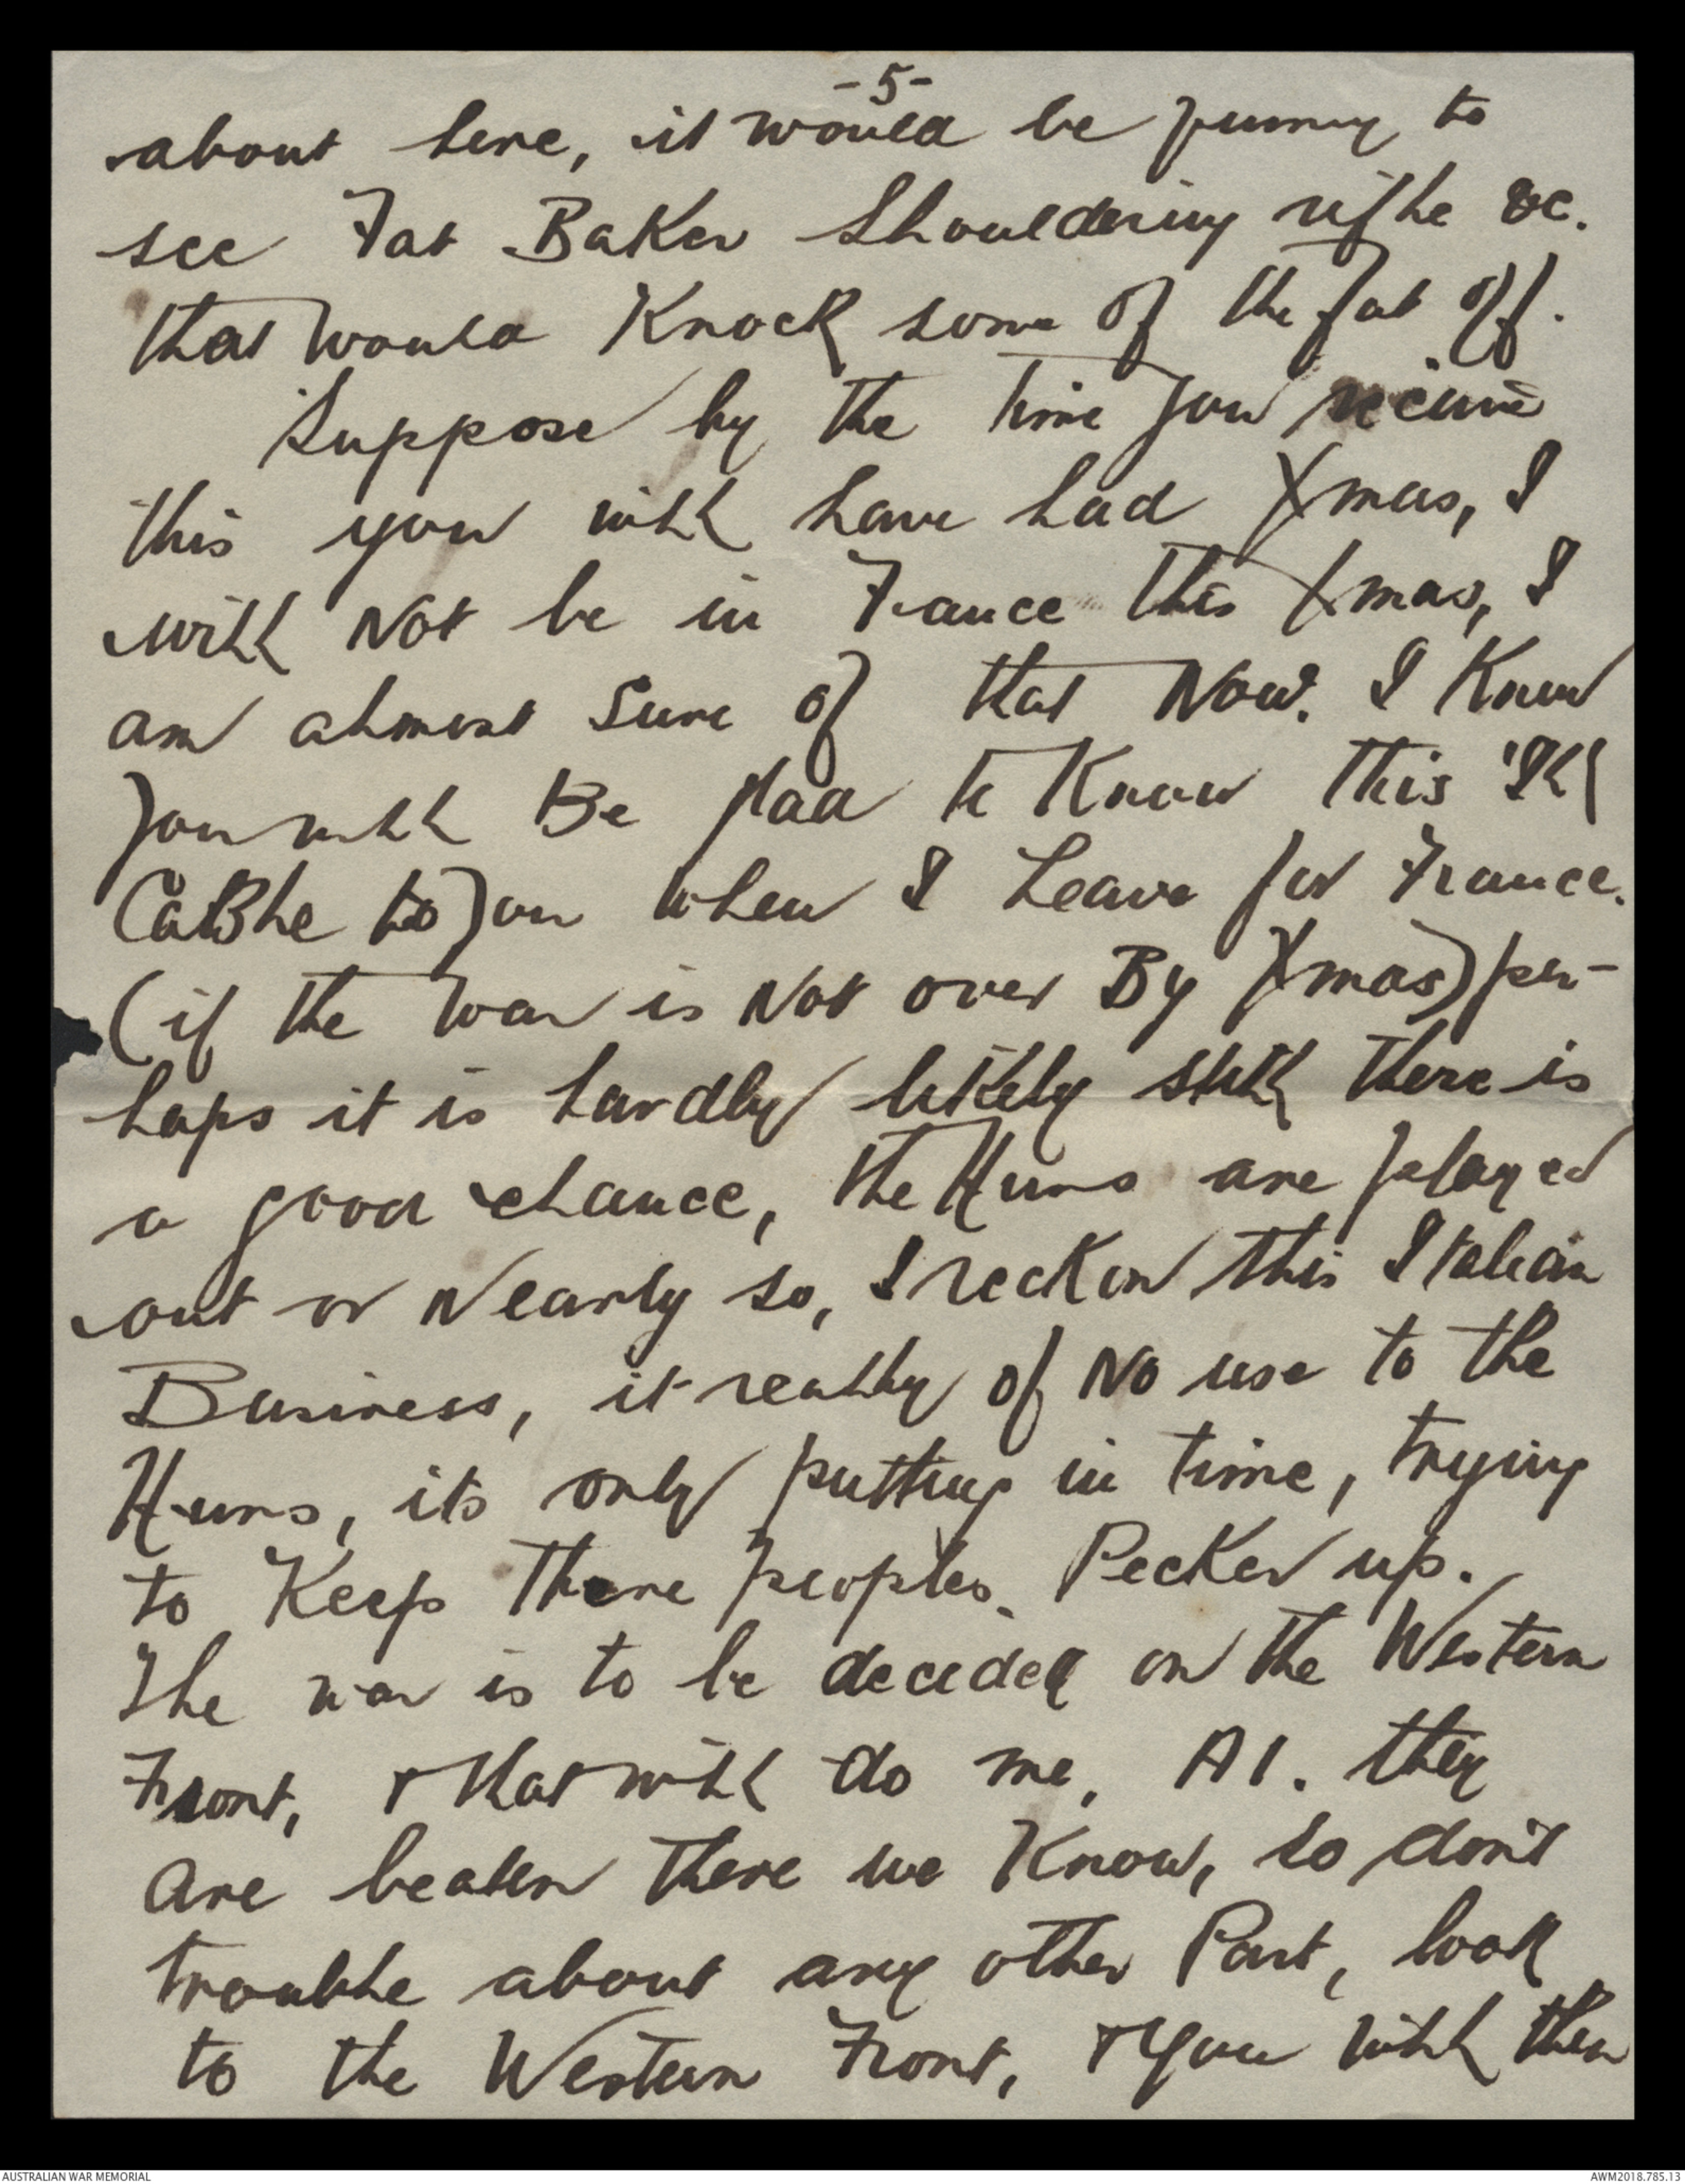 -5-
about here, it would be funny to
see Fat Baker Shouldering rifle &c.
that would Knock some of the fat off.
Suppose by the time you receive
this you will have had Xmas, I
will Not be in France this Xmas, I
am almost Sure of that Now. I Know
you will Be glad to Know this I'll
CaBle to you when I Leave for France.
(if the War is Not over By Xmas) per-
haps it is hardly likely still there is
a good chance, the Huns are played
out or Nearly so, I reckon this Italian
Business, it really of No use to the
Huns, its only putting in time, trying
to Keep There peoples Pecker up.
The war is to be decided on the Western
Front, & that will do me, A1. they
are beaten there we Know, so don't
trouble about any other Part, look
to the Western Front, & You will then
AUSTRALIAN WAR MEMORIAL
AWM2018.785.13